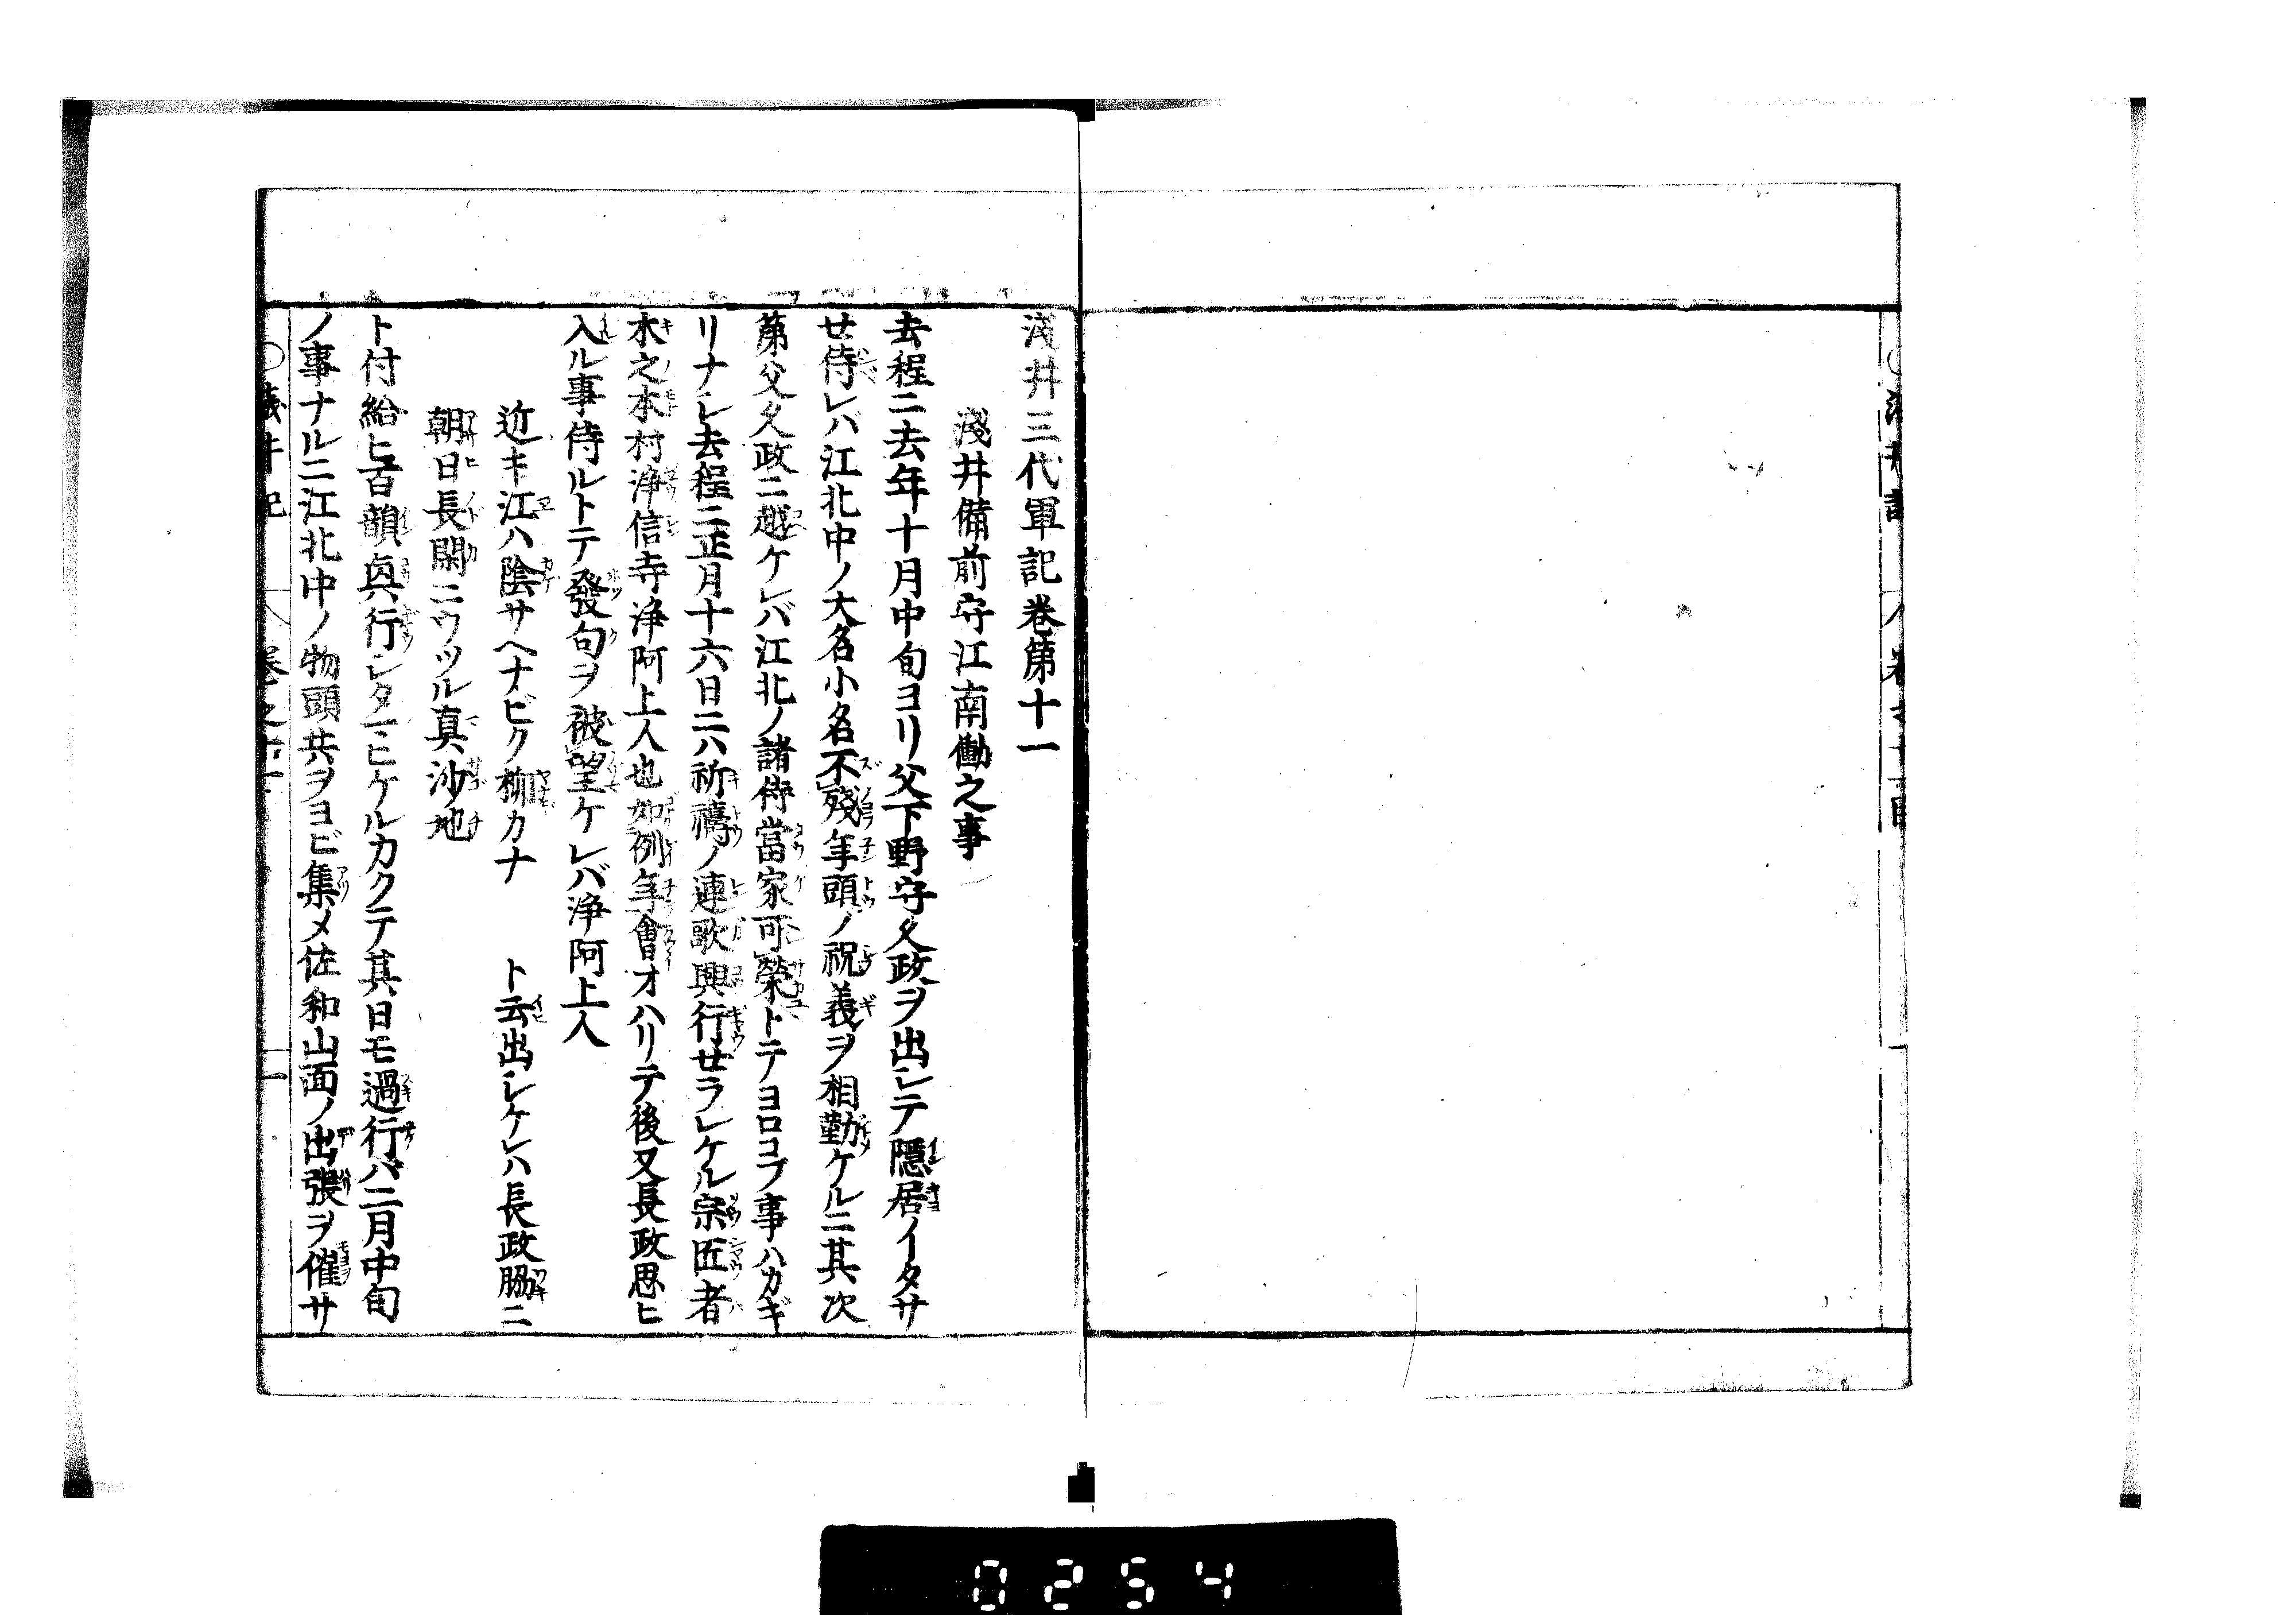 淺井三代軍記巻第十一
淺井備前守江南働之事
去程ニ去年十月中旬ヨリ父下野守久政ヲ出シテ隱居イタサ
セ侍レバ江北中ノ大名小名不殘年頭ノ祝義ヲ相勤ケルニ其次
第父久政ニ越ケレバ江北ノ諸侍當家可榮トテヨロコブ事ハカギ
リナシ去程ニ正月十六日ニハ祈禱ノ連歌興行せラレケル宗匠者
木之本村浄信寺浄阿上人也如例年會オハリテ後又長政思ヒ
入ル事侍ルトテ發句ヲ被望ケレバ浄阿上人
近キ江ハ陰サヘナビク柳カナ　ト云出シケレハ長政脇ニ
朝日長閑ニウツル真沙地
ト付給ヒ百韻興行シタマヒケルカクテ其日モ過行バ二月中旬
ノ事ナルニ江北中ノ物頭共ヲヨビ集メ佐和山面ノ出張ヲ催サ
○淺井記　巻之十一　一
0254